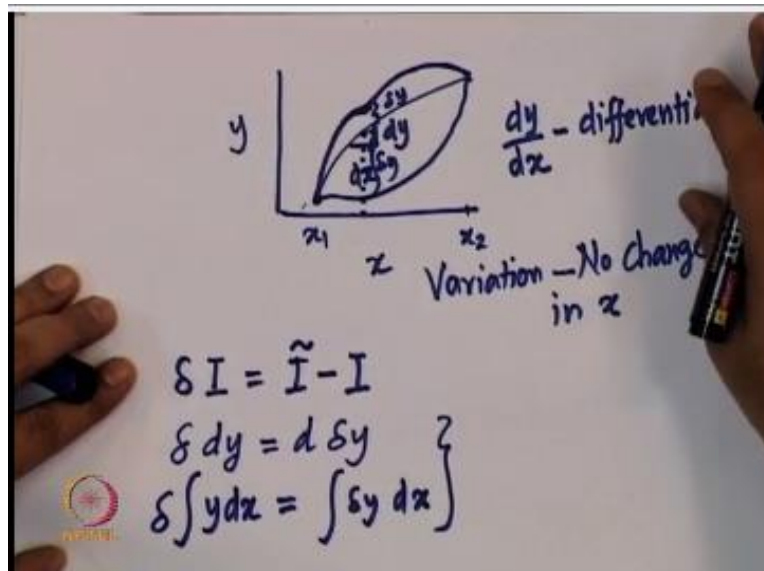 y
δy
dy
dx
δy
x₁
x
x₂
dy/dx - differenti
Variation - No Change
in x
δI = Ĩ - I
δ dy = d δy
δ∫y dx = ∫δy dx }